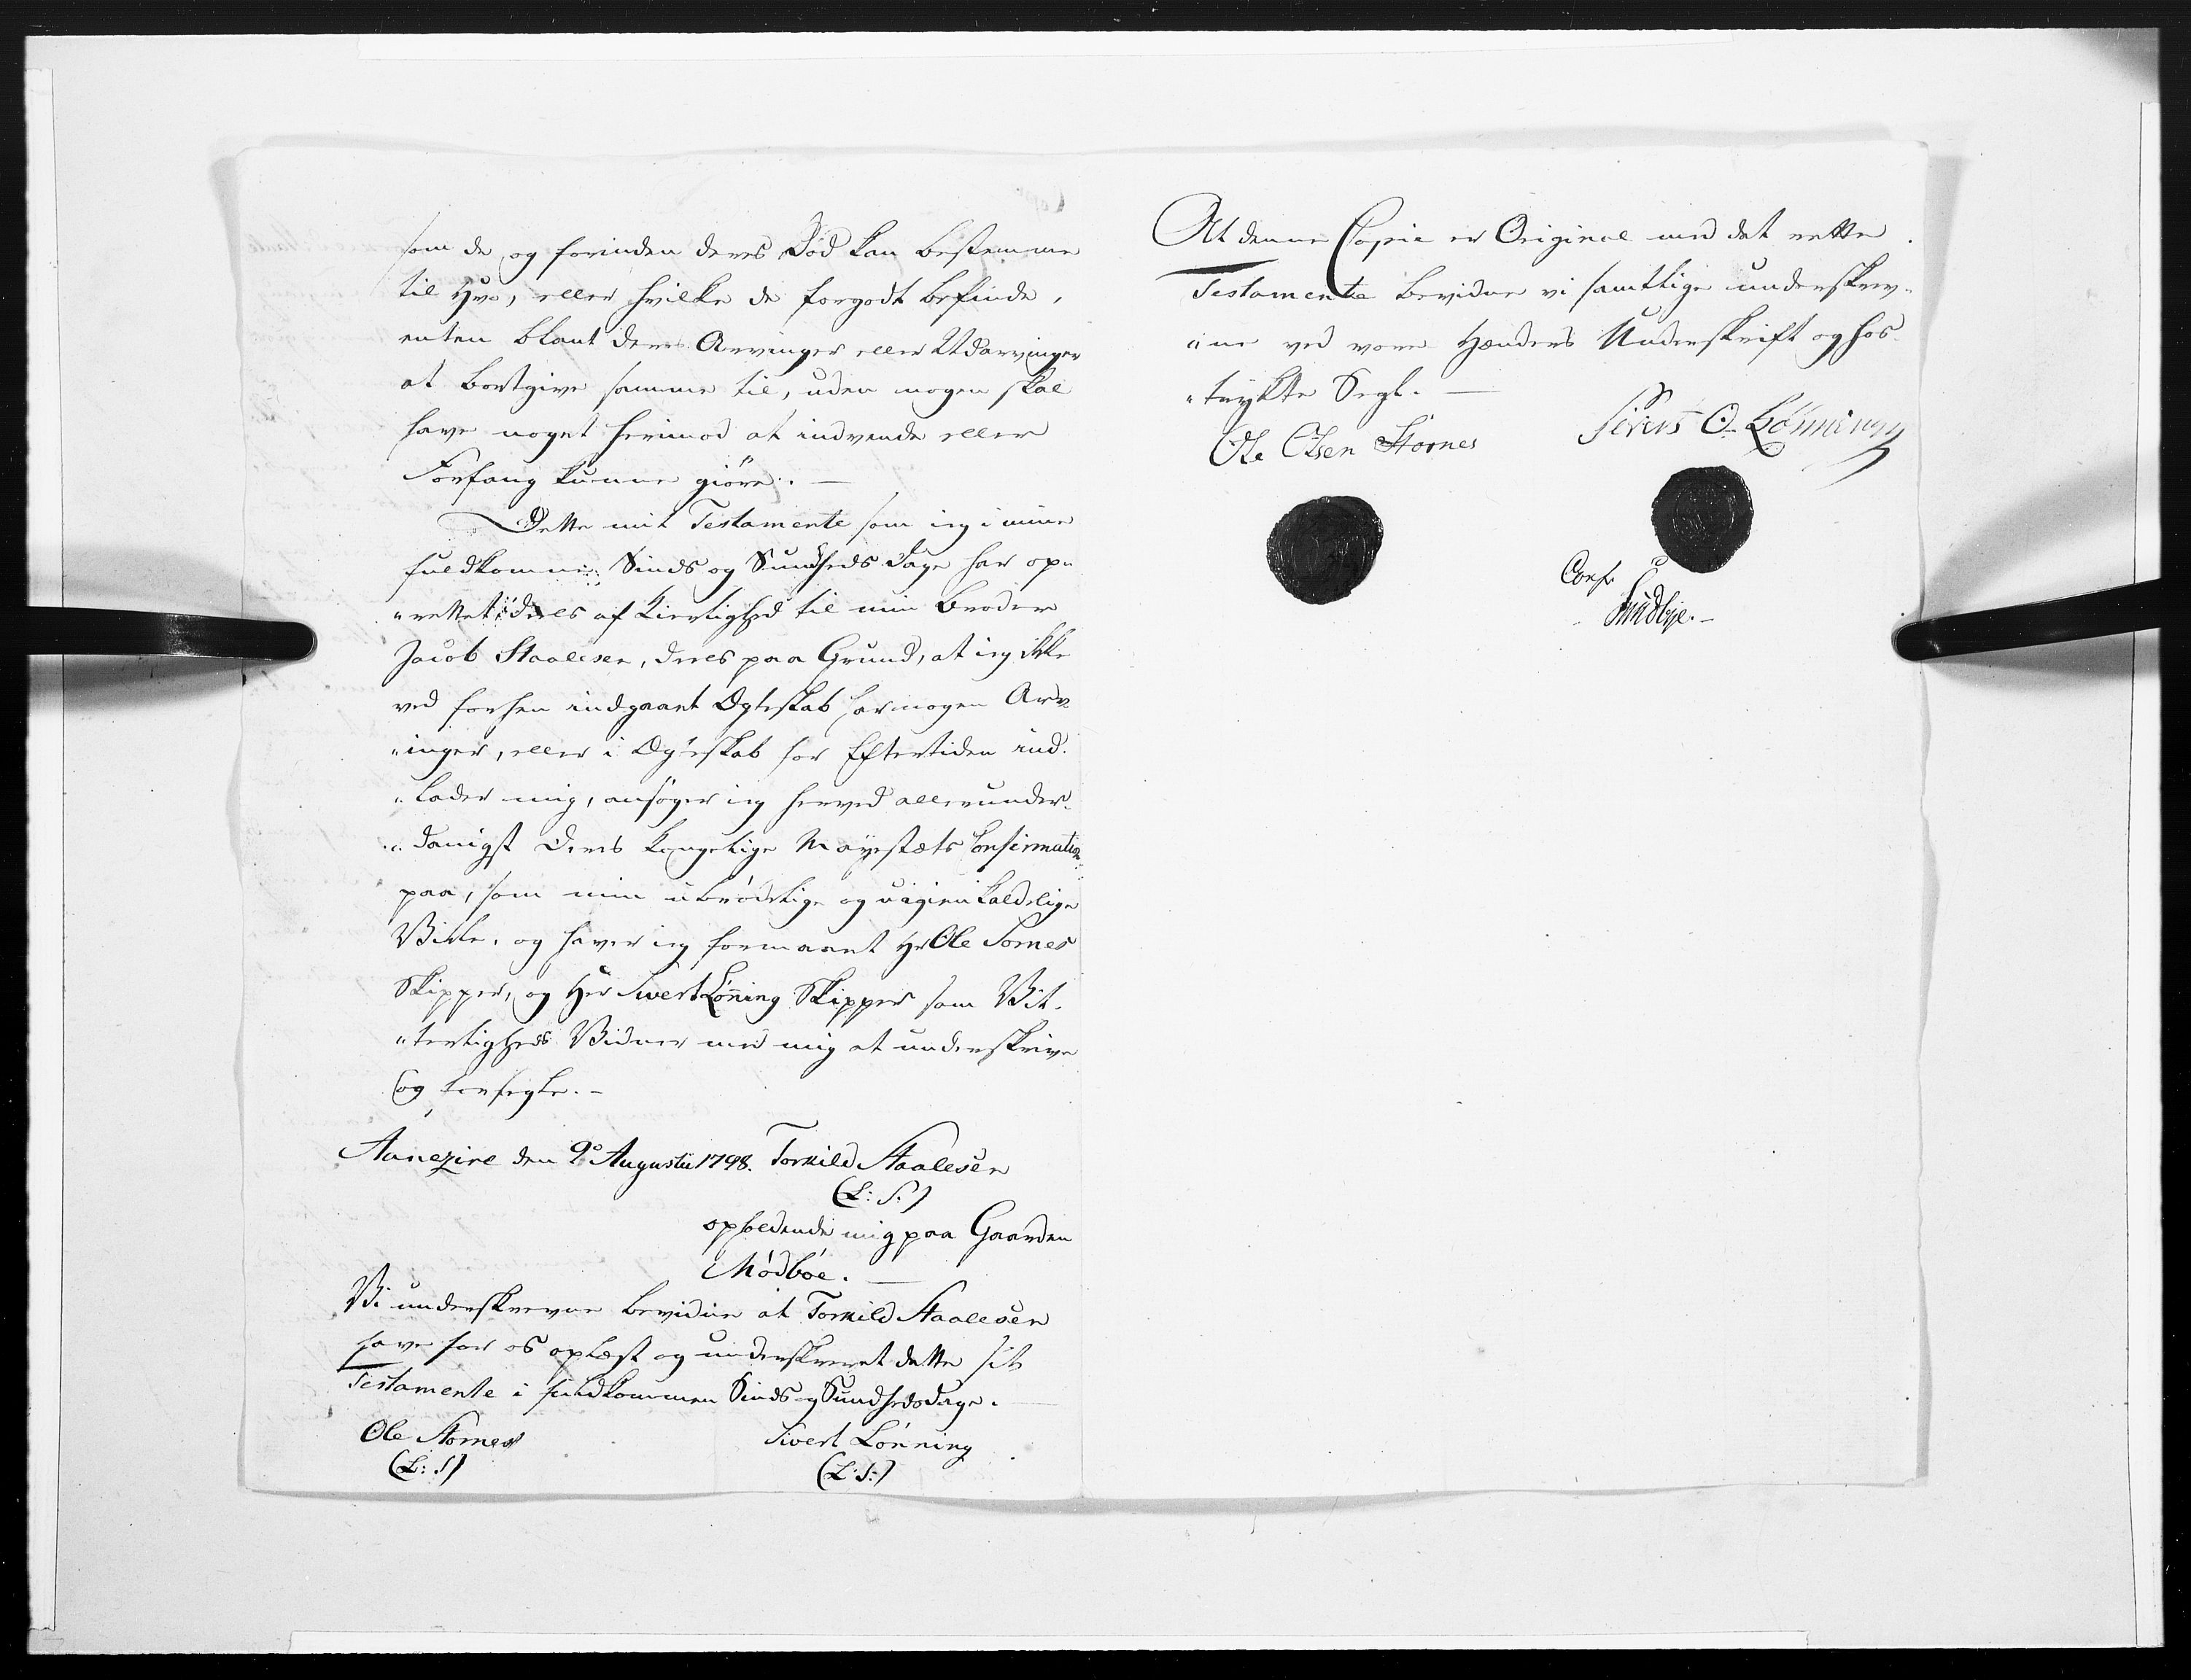 som de og forinden deres Død kan bestemme
til Hvo, eller hvilke de forgodt befinde,
enten blant deres Arvinger eller Udarvinger
at bortgive samme til, uden nogen skal
have noget herimod at indvende eller
Forfang kunne giøre. —
Dette mit Testamente som ieg i mine
fuldkomne Sinds og Sundheds Dage har op„
„rettet deels af Kierlighed til min Broder
Jacob Staalesen, deels paa Grund, at ieg ikke
ved forhen indgaaet Ægteskab har nogen Arv„
„inger, eller i Ægteskab for Eftertiden ind„
„lader mig, ansøger ieg herved allerunder„
„danigst Deres Kongelige Mayestæts Confirmation
paa, som min ubrødelige og uigienkaldelige
Villie, og haver ieg formaaet Hr Ole Stornes
Skipper, og Her Sivert Lönning Skipper som Vit„
„terligheds Vidner med mig at underskrive
og forsegle. —
Aanezire den 9de Augustii 1798. Torkild Staalesen
(L: S:)
opholdende mig paa Gaarden
Mödböe. —
Vi underskrevne bevidne at Torkild Staalesen
have for os oplæst og underskrevet dette sit
Testamente i fuldkommen Sinds og Sundheds Dage.
Ole Stornes Sivert Lönning
(L: S) (L: S:)
At denne Copie er Original med det rette
Testamente bevidne vi samtlige underskrev„
„ne ved vore Hænders Underskrift og hos„
„trykte Segl. —
Ole Olsen Stornes Siver O. Lönning
Conf.